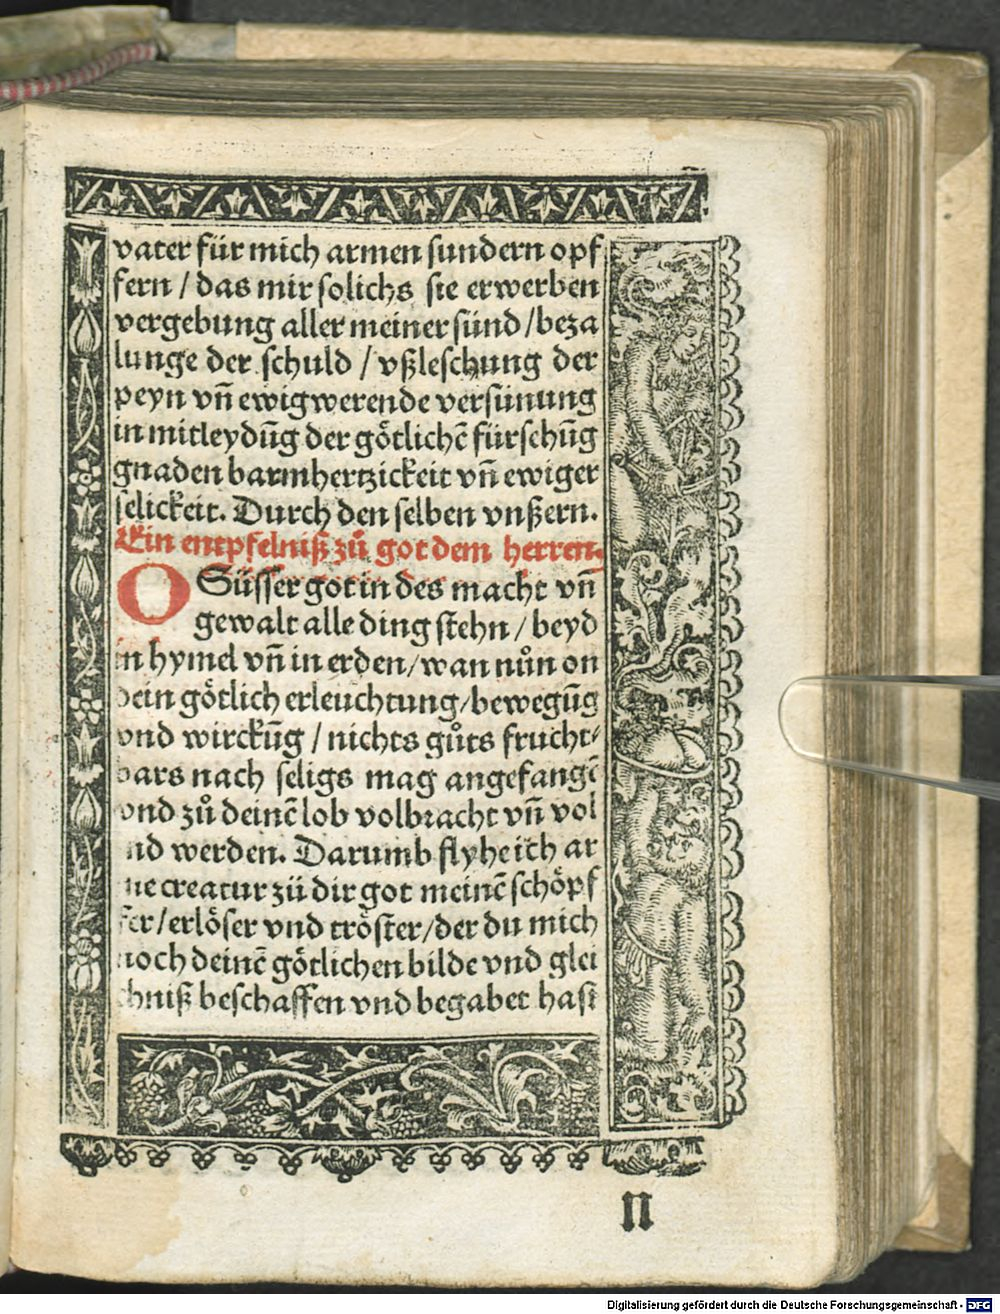 vater für mich armen sundern opf
fern / das mir solichs sie erwerben
vergebung aller meiner sünd / beza
lunge der schuld / vßleschung der
peyn vn̄ ewigwerende versünung
in mitleydūg der götlichē fürsehūg
gnaden barmhertzickeit vn̄ ewiger
selickeit. Durch den selben vnßern.
Ein entpfelniß zů got dem herren.
O Süsser got in des macht vn̄
gewalt alle ding stehn / beyd
in hymel vn̄ in erden / wan nůn on
dein götlich erleuchtung / bewegūg
vnd wirckūg / nichts gůts frucht⸗
bars nach seligs mag angefangē
vnd zů deinē lob volbracht vn̄ vol
nd werden. Darumb flyhe ich ar
me creatur zü dir got meinē schöpf
fer / erlöser vnd tröster / der du mich
noch deinē götlichen bilde vnd glei
chniß beschaffen vnd begabet hast
II
Digitalisierung gefördert durch die Deutsche Forschungsgemeinschaft - DFG